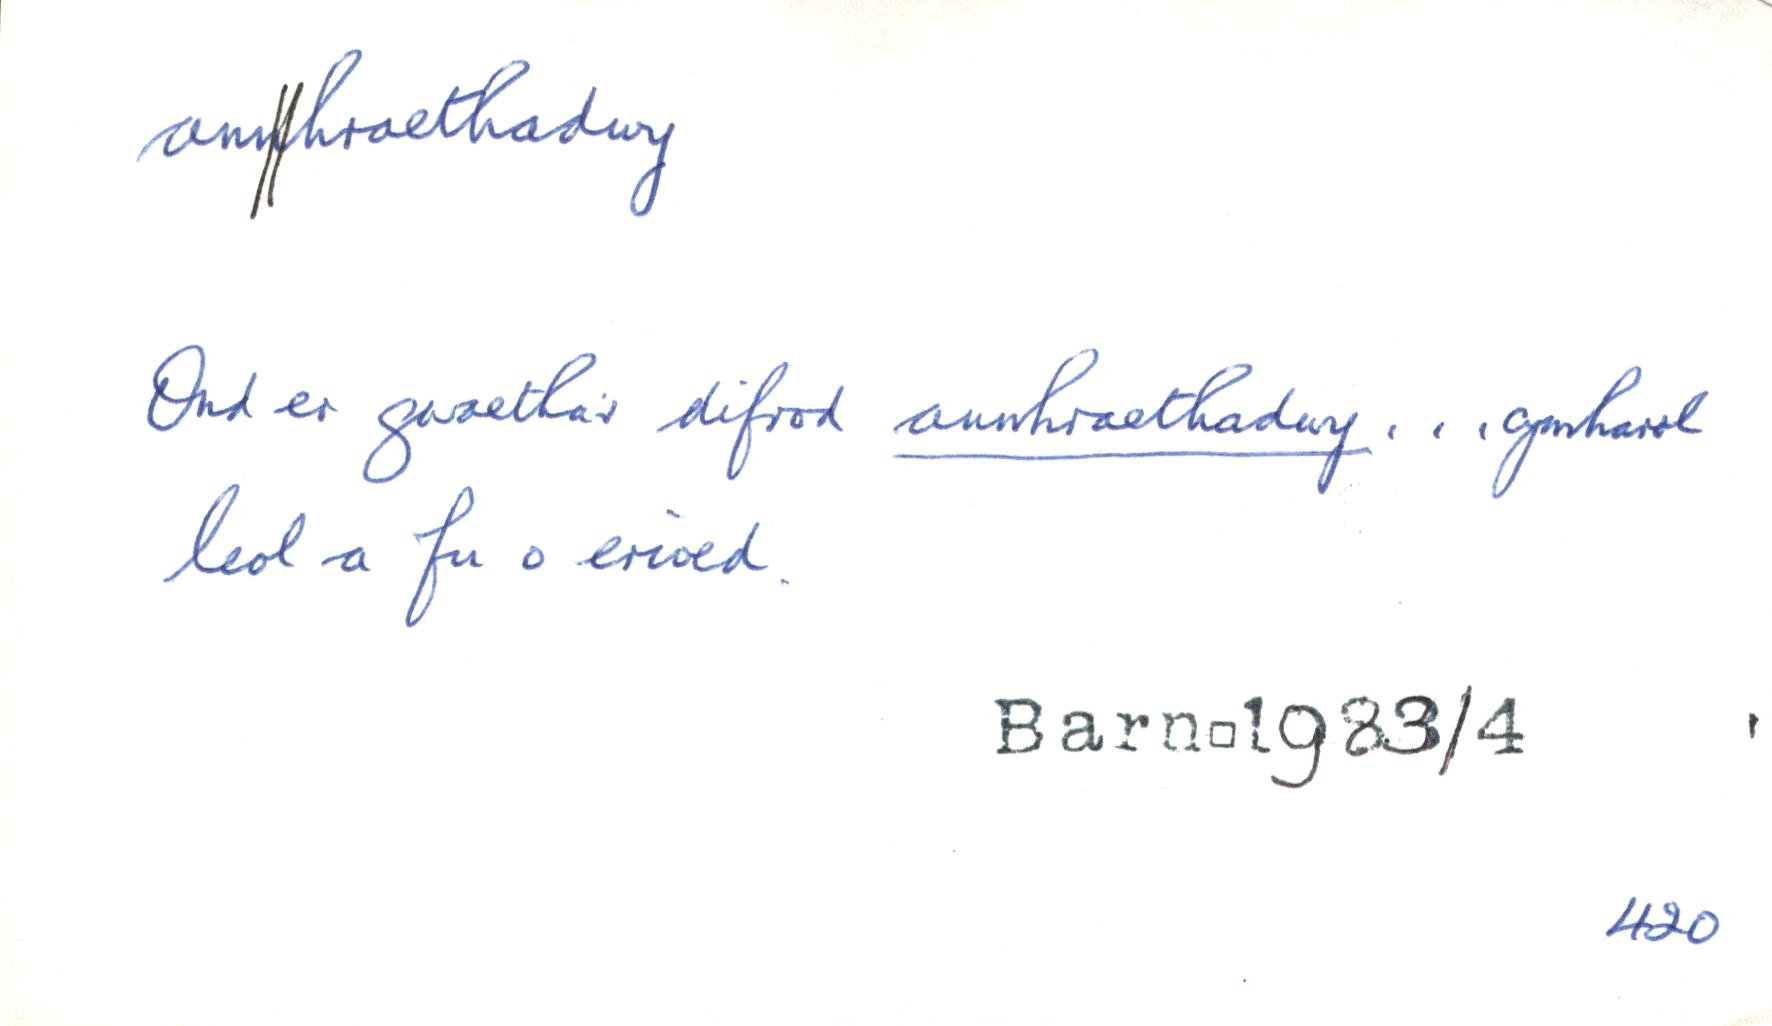 ann//hraethadwy
Ond er gwaetha'r difrod annhraethadwy . . . cymharol
leol a fu o erioed.
Barn▫1983/4
420